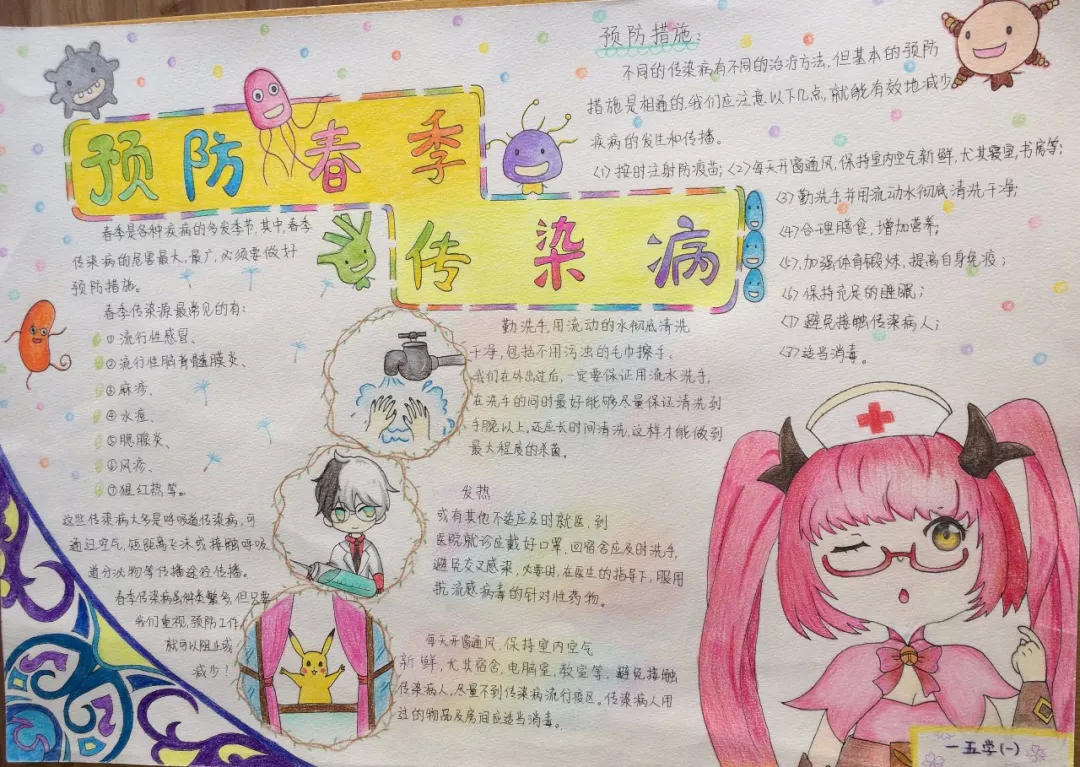 预防春季
传染病
春季是各种疾病的多发季节,其中,春季
传染病的危害最大,最广,必须要做好
预防措施。
春季传染源最常见的有:
①流行性感冒、
②流行性脑脊髓膜炎、
③麻疹、
④水痘、
⑤腮腺炎、
⑥风疹、
⑦猩红热等。
这些传染病大多是呼吸道传染病,可
通过空气,短距离飞沫或接触呼吸
道分泌物等传播途径传播。
春季传染病虽种类繁多,但只要
我们重视,预防工作,
就可以阻止或
减少!
预防措施:
不同的传染病有不同的治疗方法,但基本的预防
措施是相通的,我们应注意以下几点,就能有效地减少
疾病的发生和传播。
<1>按时注射防疫苗;<2>每天开窗通风,保持室内空气新鲜,尤其寝室,书房等;
<3>勤洗手并用流动水彻底清洗干净;
<4>合理膳食,增加营养;
<5>加强体育锻炼,提高自身免疫;
<6>保持充足的睡眠;
<7>避免接触传染病人;
<8>适当消毒。
勤洗手,用流动的水彻底清洗
干净,包括不用污浊的毛巾擦手、
我们在外出过后,一定要保证用流水洗手,
在洗手的同时最好能够尽量保证清洗到
手腕以上,还应长时间清洗,这样才能做到
最大程度的杀菌。
发热
或有其他不适应及时就医,到
医院就诊应戴好口罩,回宿舍应及时洗手,
避免交叉感染,必要时,在医生的指导下,服用
抗流感病毒的针对性药物。
每天开窗通风,保持室内空气
新鲜,尤其宿舍,电脑室,教室等,避免接触
传染病人,尽量不到传染病流行疫区。传染病人用
过的物品及房间应适当消毒。
一五学(一)